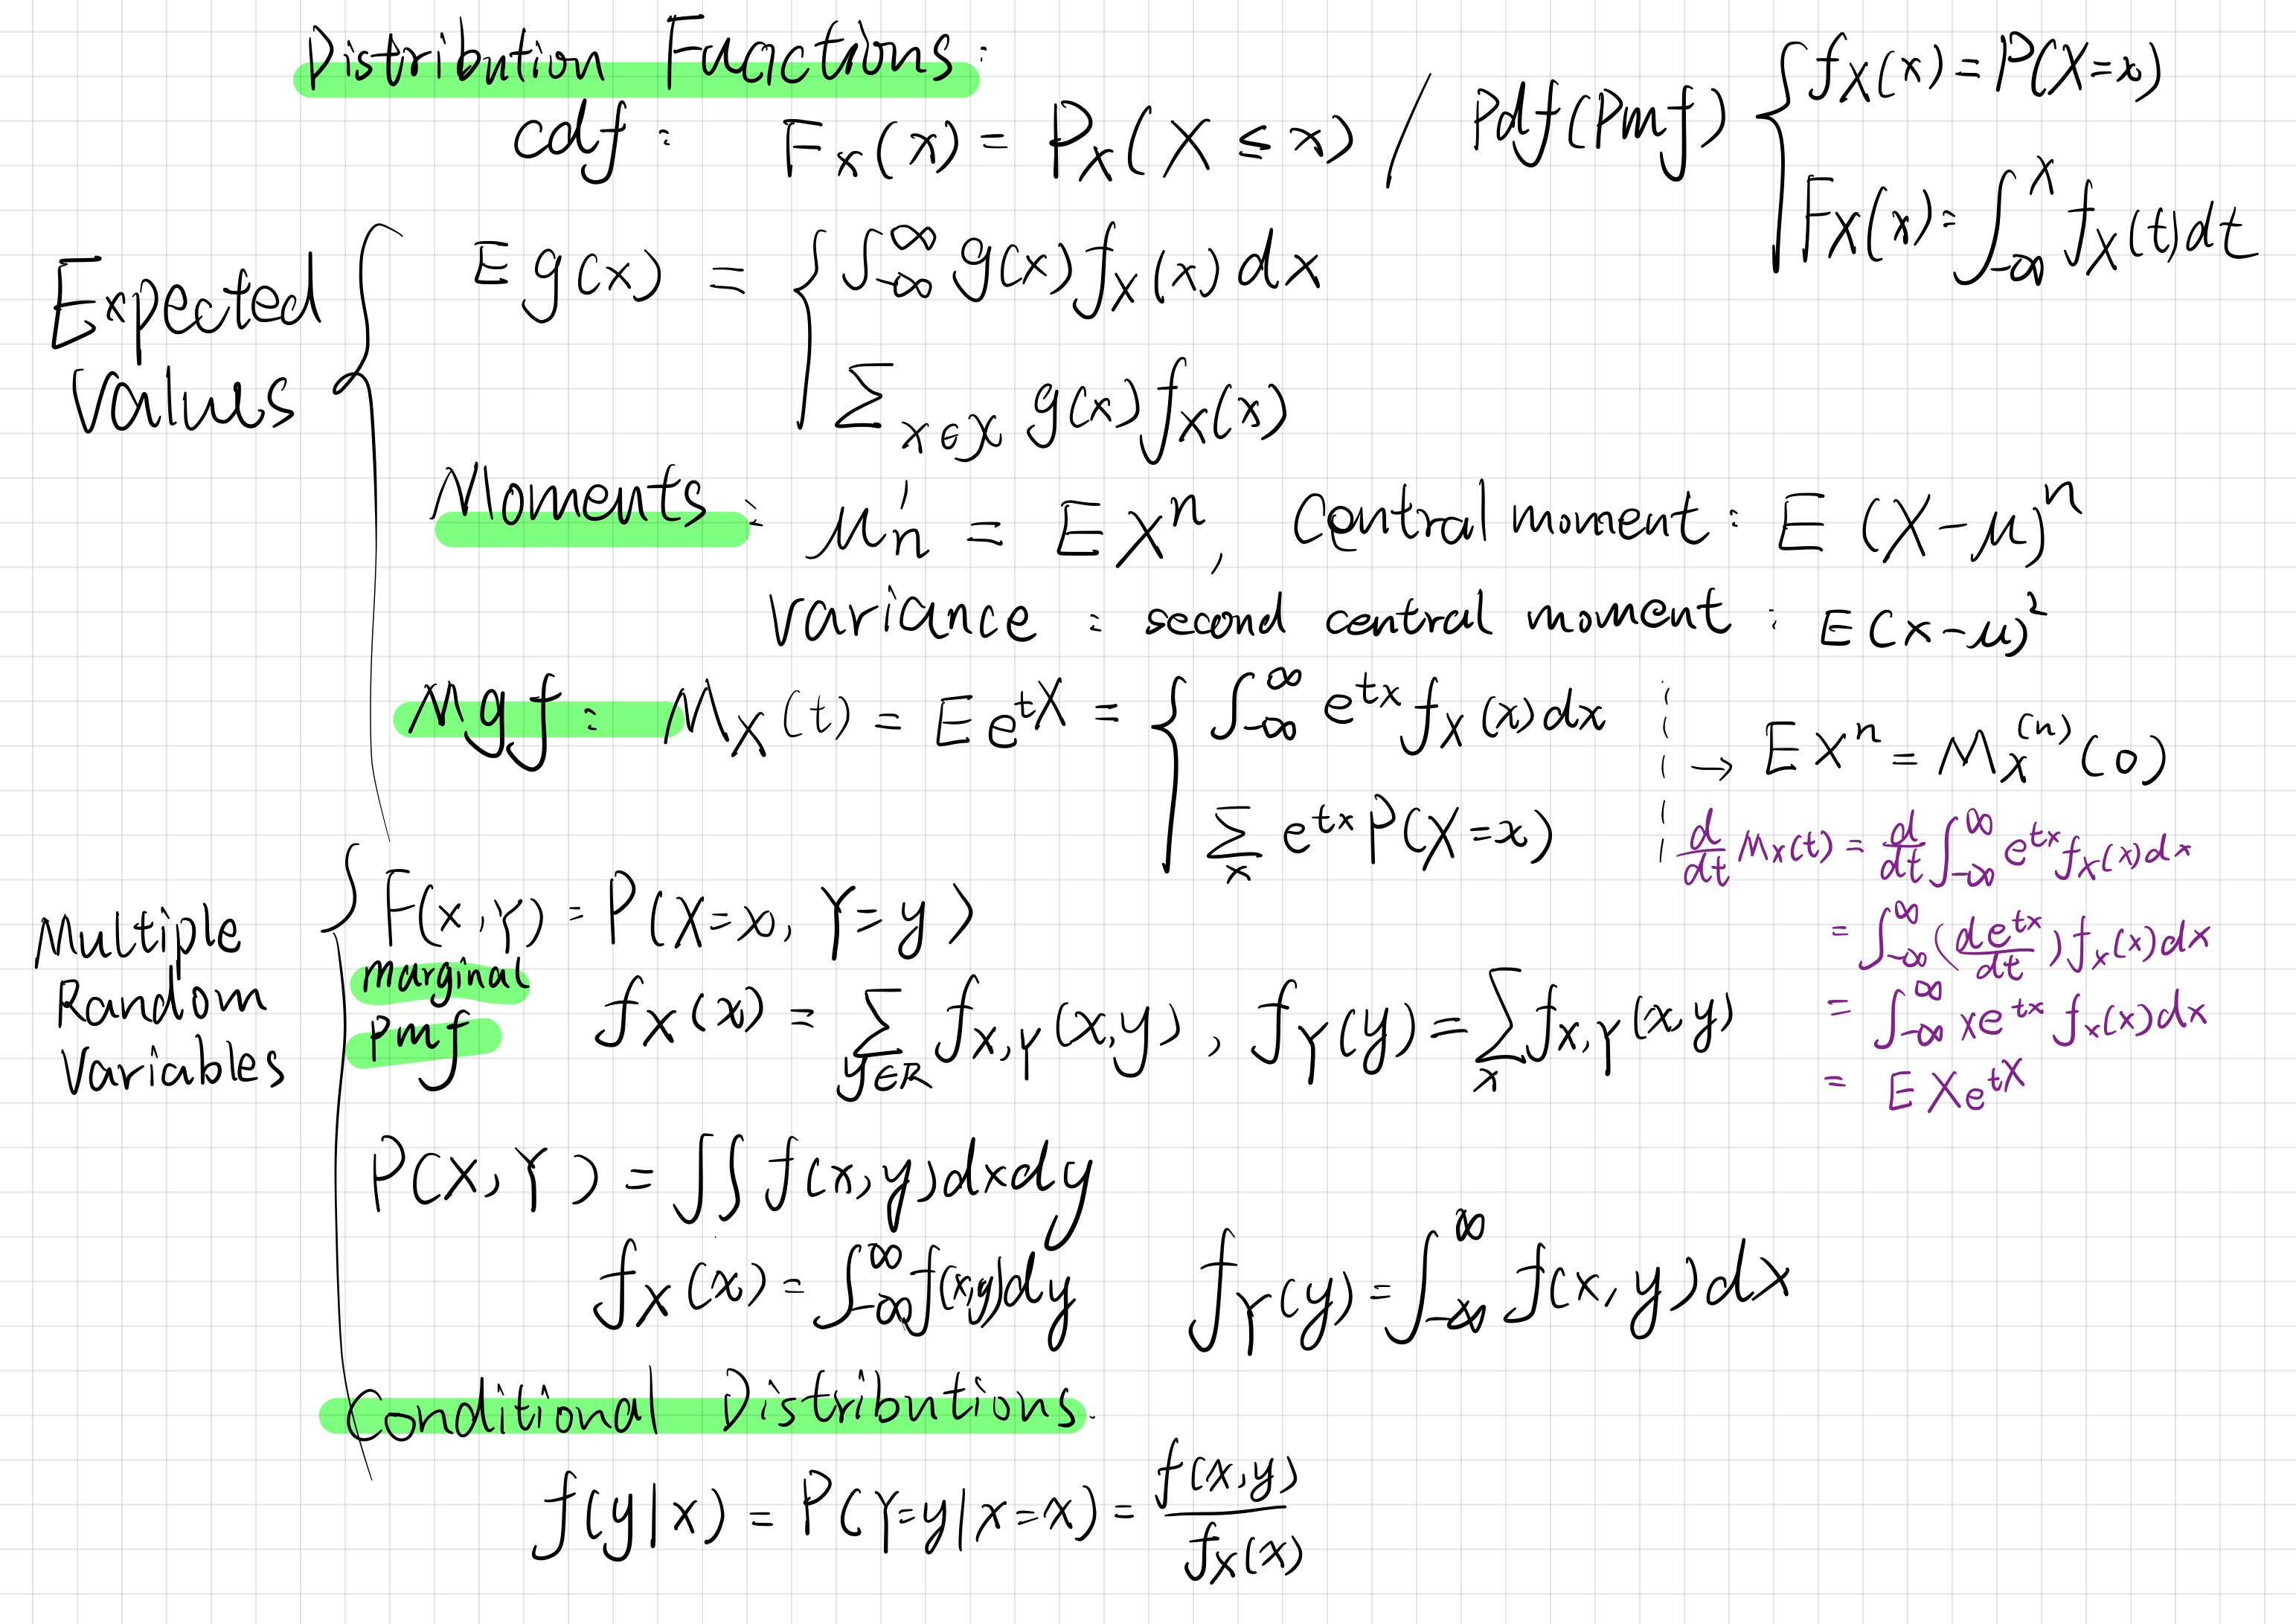 Distribution Fucictions:
cdf: F_X(x) = P_X(X ≤ x) / Pdf(Pmf) { f_X(x) = P(X=x)
F_X(x) = ∫_{-∞}^{x} f_X(t)dt
Expected Values { E g(x) = { ∫_{-∞}^{∞} g(x) f_X(x) dx
∑_{x∈𝒳} g(x) f_X(x)
Moments: μ'_n = E X^n, Central moment: E (X-μ)^n
Variance: second central moment: E(X-μ)^2
Mgf: M_X(t) = E e^{tX} = { ∫_{-∞}^{∞} e^{tx} f_X(x)dx
∑_x e^{tx} P(X=x)
→ E X^n = M_X^{(n)}(0)
d/dt M_X(t) = d/dt ∫_{-∞}^{∞} e^{tx} f_X(x)dx
= ∫_{-∞}^{∞} (de^{tx}/dt) f_X(x)dx
= ∫_{-∞}^{∞} xe^{tx} f_X(x)dx
= E Xe^{tX}
Multiple
Random
Variables
F(x,y) = P(X=x, Y=y)
marginal
pmf
f_X(x) = ∑_{y∈R} f_{X,Y}(x,y), f_Y(y) = ∑_x f_{X,Y}(x,y)
P(X,Y) = ∫∫ f(x,y)dxdy
f_X(x) = ∫_{-∞}^{∞} f(x,y)dy f_Y(y) = ∫_{-∞}^{∞} f(x,y)dx
Conditional Distributions.
f(y|x) = P(Y=y|X=x) = f(x,y)/f_X(x)